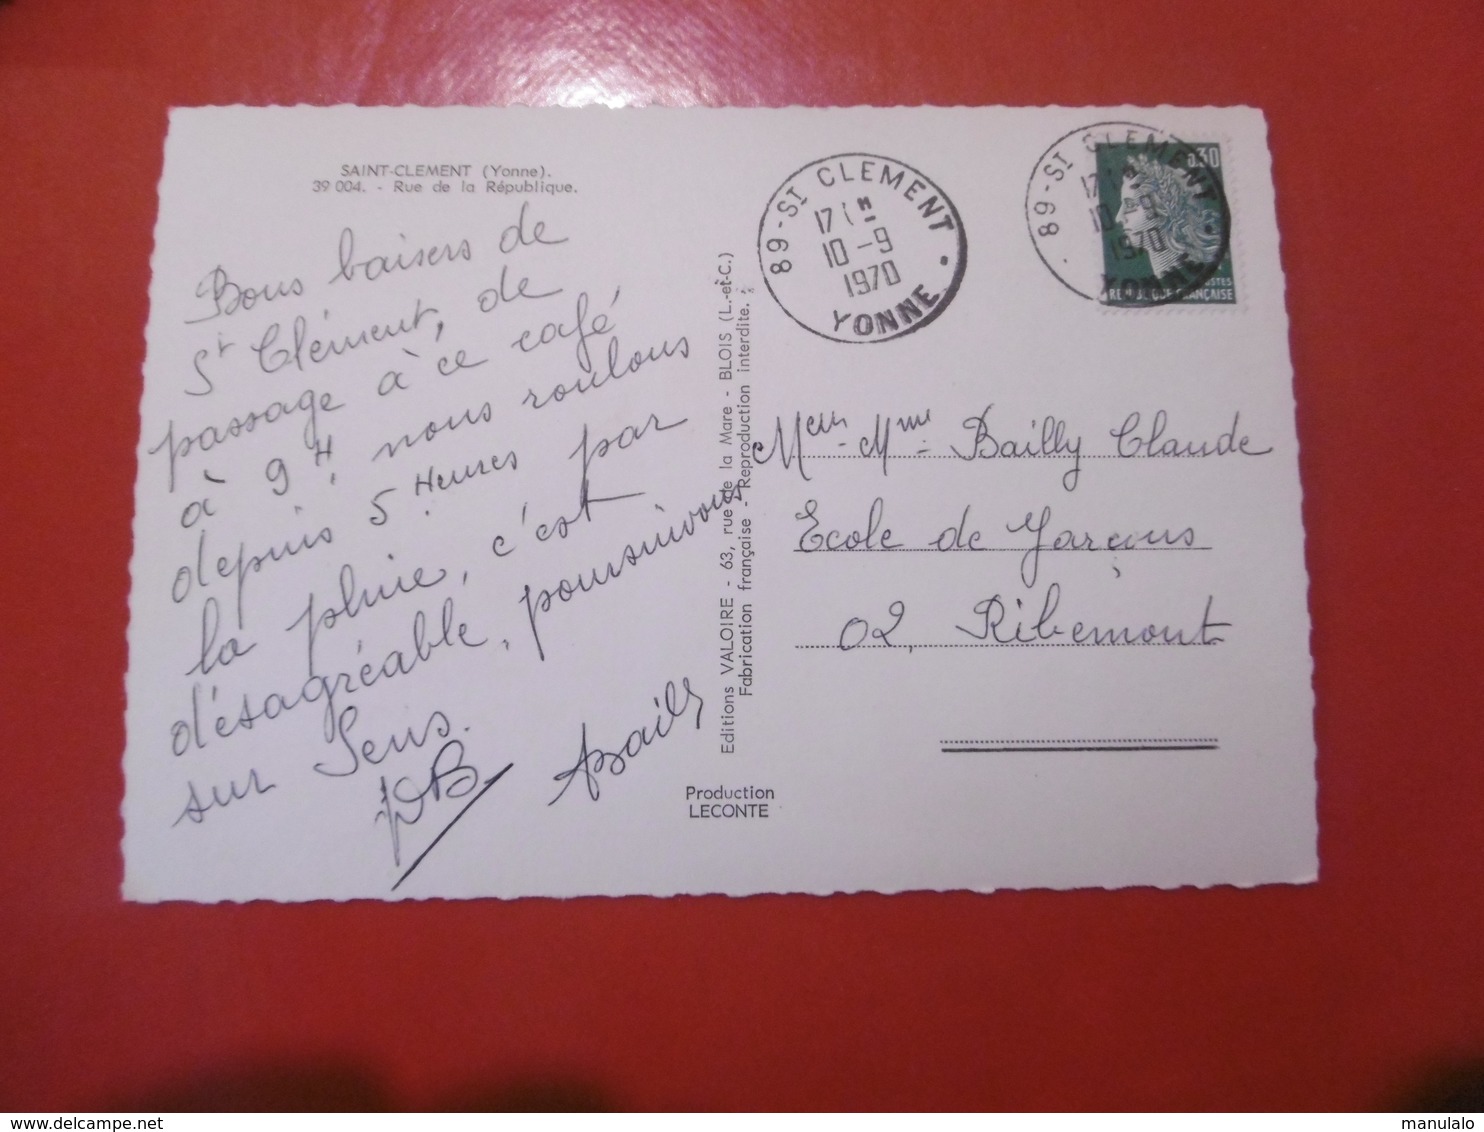 SAINT-CLEMENT (Yonne).
39 004. - Rue de la République.
Bons baisers de
St Clément, de
passage à ce café
à 9H, nous roulons
depuis 5 Heures par
la pluie, c'est
désagréable, poursuivons
sur Sens.
PB Bailly
Editions VALOIRE - 63, rue de la Mare - BLOIS (L.-et-C.)
Fabrication française - Reproduction interdite.
Production
LECONTE
89 - ST CLEMENT
17 H
10 - 9
1970
YONNE
89 - ST CLEMENT
17 H
10 - 9
1970
YONNE
0,30
POSTES
REPUBLIQUE FRANÇAISE
Mme Bailly Claude
Ecole de Garçons
02, Ribemont
manulalo